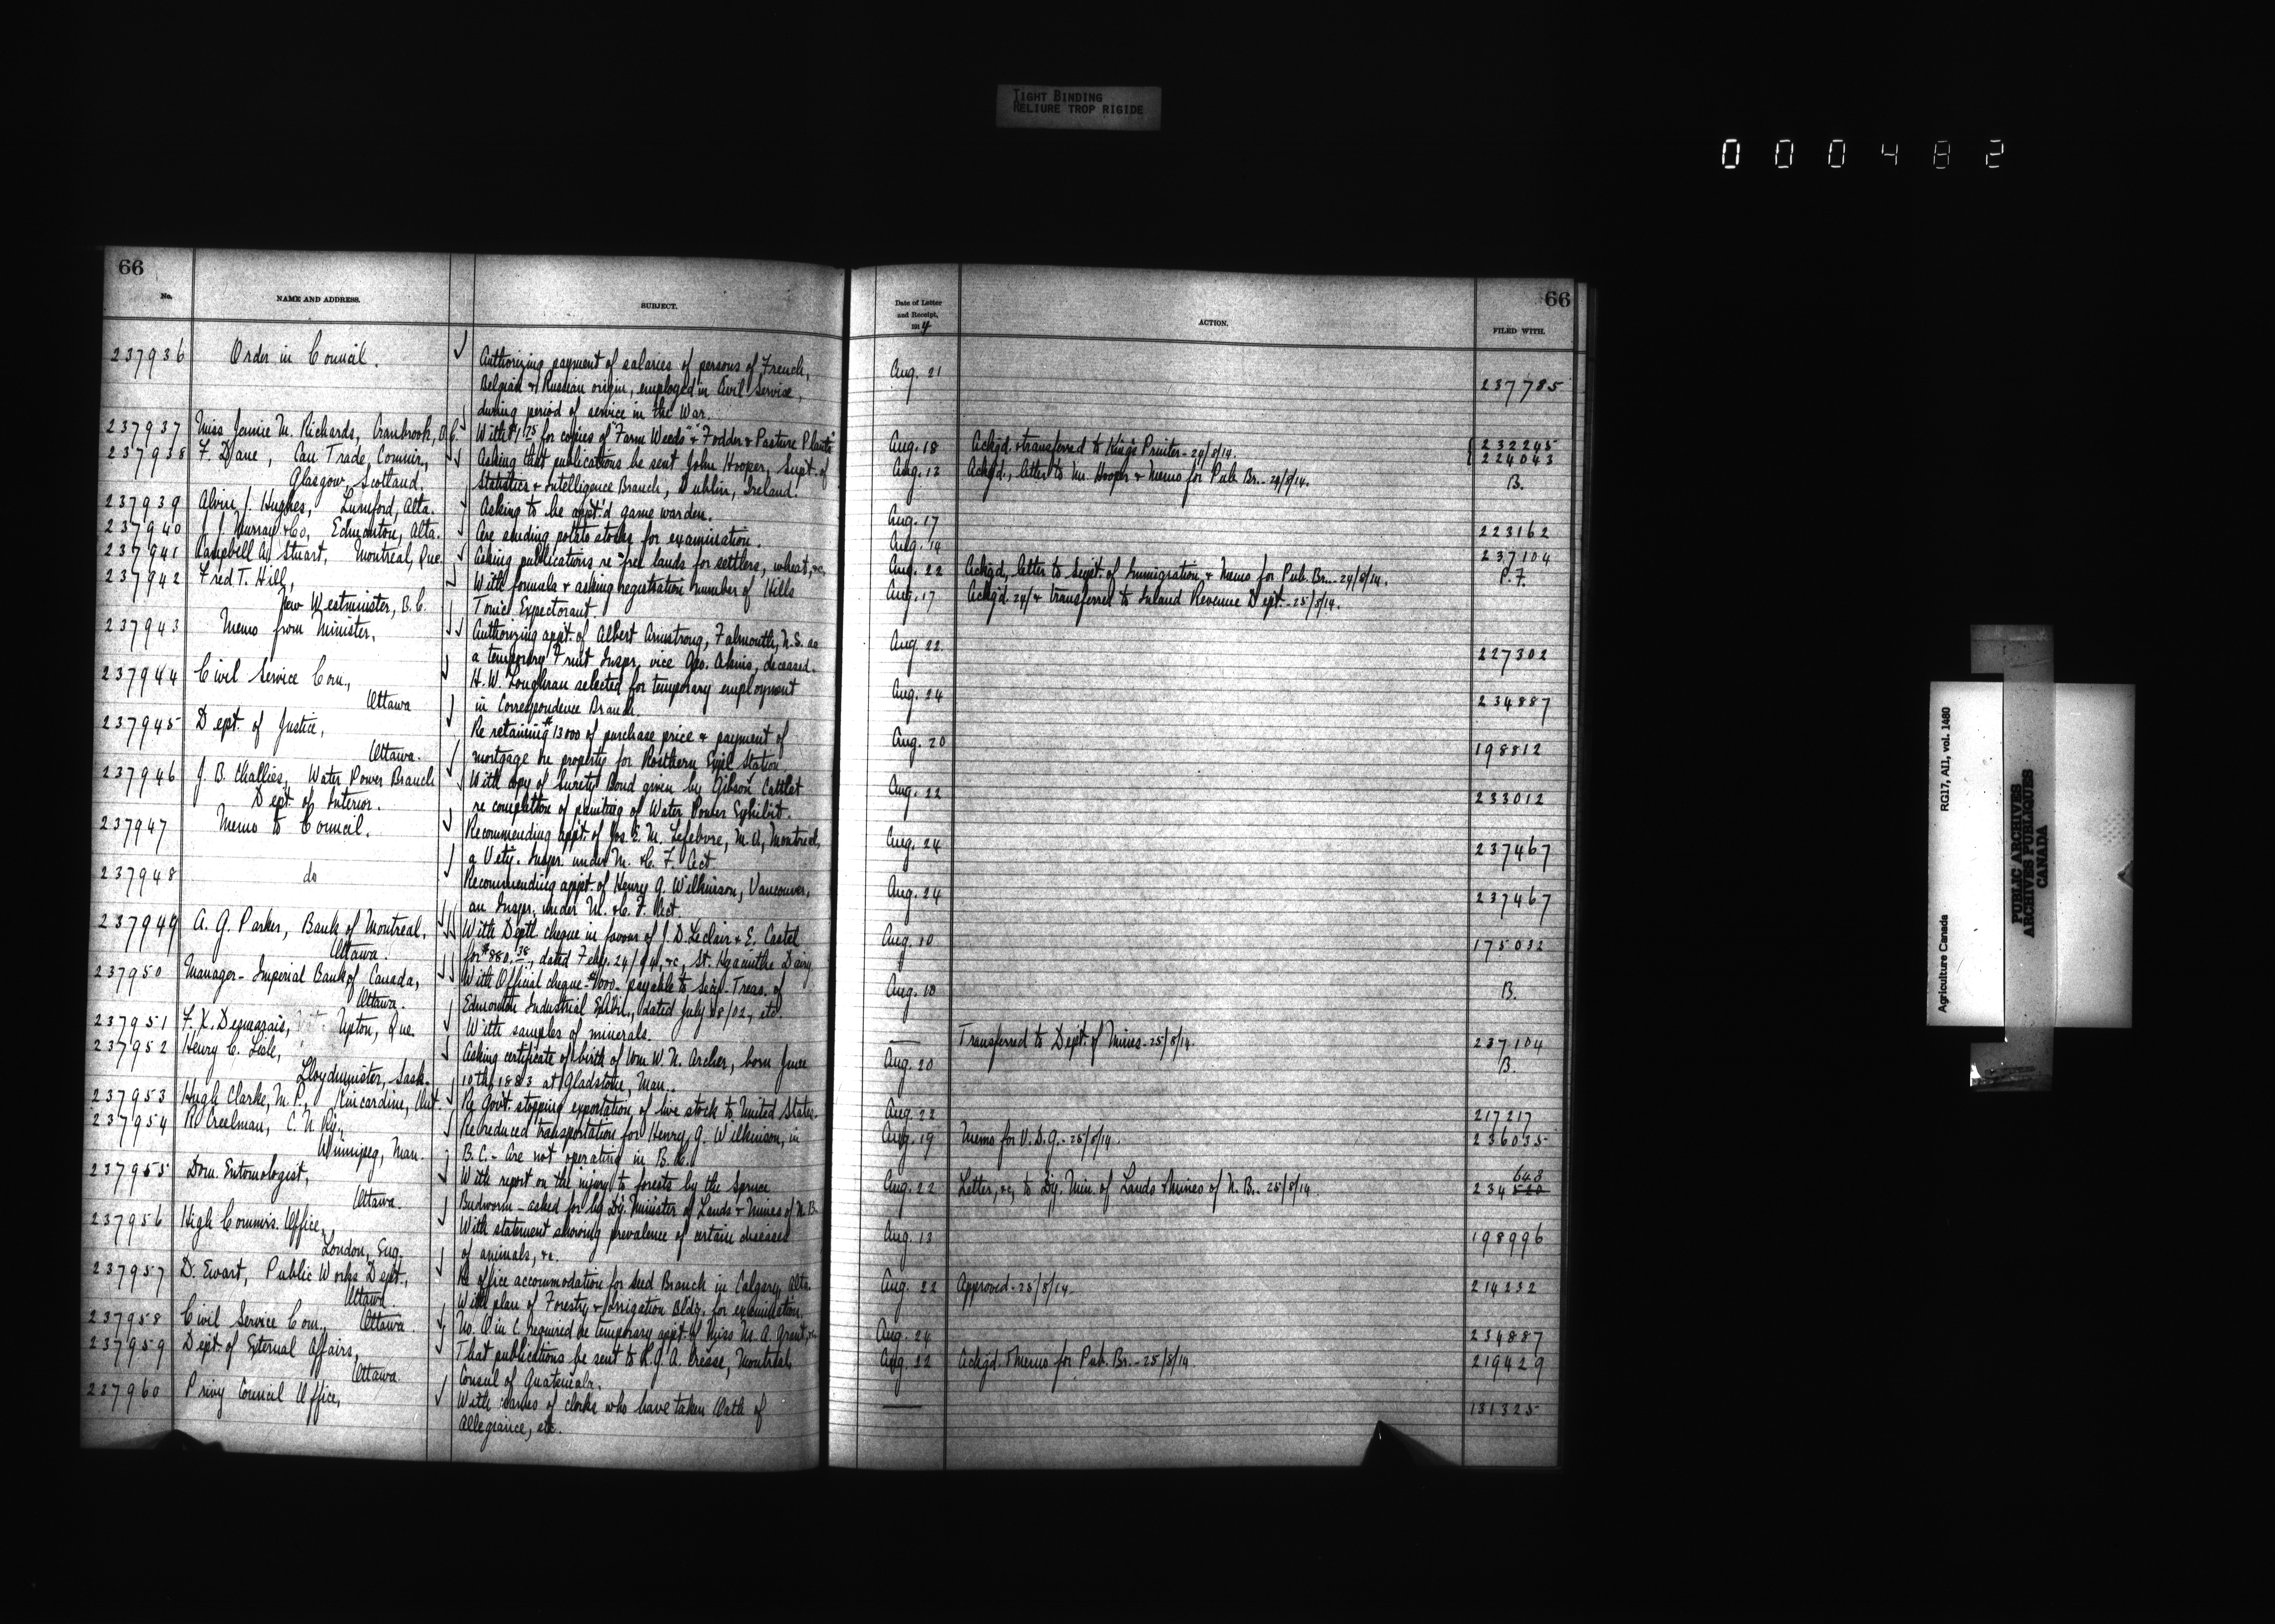 TIGHT BINDING
RELIURE TROP RIGIDE
000482
66
No.
NAME AND ADDRESS.
SUBJECT.
Date of Letter
and Receipt,
1914
ACTION.
FILED WITH.
66
237936 Order in Council. Authorizing payment of salaries of persons of French, Aug. 21
Belgian & Russian origin, employed in Civil Service, 237785
during period of service in the War.
237937 Miss Jennie M. Richards, Cranbrook, B.C. With $1.75 for copies of "Farm Weeds" & "Fodder & Pasture Plants" Aug. 18 Ackgd. & transferred to King's Printer - 24/8/14. 232245
224043
237938 F. Dane, Can Trade Commr., Asking that publications be sent John Hooper, Supt. of Aug. 12 Ackgd., letter to Mr. Hooper & Memo for Pub. Br. - 24/8/14. B.
Glasgow, Scotland. Statistics & Intelligence Branch, Dublin, Ireland.
237939 Alvin J. Hughes, Lunnford, Alta. Asking to be appt'd game warden. Aug. 17 223162
237940 J. J. Murray & Co, Edmonton, Alta. Are sending potato stocks for examination. Aug. 14 237104
237941 Campbell A. Stuart, Montreal, Que. Asking publications re "free lands for settlers, wheat, &c. Aug. 22 Ackgd., letter to Supt. of Immigration & Memo for Pub. Br. - 24/8/14. P.F.
237942 Fred T. Hill, With formula & asking registration number of Hills Aug. 17 Ackgd. 24/8 & transferred to Inland Revenue Dept. - 25/8/14.
New Westminster, B.C. Tonic Expectorant.
237943 Memo from Minister, Authorizing appt. of Albert Armstrong, Falmouth, N.S. as Aug. 22
a temporary Fruit Inspr., vice Geo. Akins, deceased. 227302
237944 Civil Service Com., H. W. Loughran selected for temporary employment Aug. 24
Ottawa in Correspondence Branch. 234887
237945 Dept. of Justice, Re retaining $13000 of purchase price & payment of Aug. 20
Ottawa. mortgage on property for Rosthern Expl. Station 198812
237946 J. B. Challies, Water Power Branch With copy of Surety Bond given by Gibson Catlet Aug. 22
Dept. of Interior. re completion of painting of Water Power Exhibit. 233012
237947 Memo to Council. Recommending appt. of Jos. E. M. Lefebvre, M.A., Montreal, Aug. 24
a Vety. Inspr. under M. & C. F. Act 237467
237948 do Recommending appt. of Henry G. Wilkinson, Vancouver, Aug. 24
an Inspr. under M. & C. F. Act 237467
237949 A. G. Parker, Bank of Montreal, With Deptl. cheque in favour of J. D. Leclair & E. Castel Aug. 10 175032
Ottawa. for $880.38, dated Feby. 24/94, &c, St. Hyacinthe Dairy
237950 Manager - Imperial Bank of Canada, With Official cheque - $1000 - payable to Secy.-Treas. of Aug. 10 B.
Ottawa. Edmonton Industrial Exhbn., dated July 18/02, etc.
237951 F. X. Desmarais, Upton, Que. With samples of minerals. — Transferred to Dept. of Mines - 25/8/14. 237104
237952 Henry C. Lisle, Asking certificate of birth of Wm. W. N. Archer, born June Aug. 20 B.
Lloydminster, Sask. 10th, 1883 at Gladstone, Man.
237953 Hugh Clarke, M.P., Kincardine, Ont. Re Govt. stopping exportation of live stock to United States. Aug. 22 217217
237954 R. Creelman, C. N. Ry., Re reduced transportation for Henry G. Wilkinson, in Aug. 19 Memo for V.D.G. - 25/8/14. 236035
Winnipeg, Man. B.C. - Are not operating in B.C.
237955 Dom. Entomologist, With report on the injury to forests by the Spruce Aug. 22 Letter, &c, to Dy. Min. of Lands & Mines of N.B. - 25/8/14. 234 648
Ottawa. Budworm - asked for by Dy. Minister of Lands & Mines of N.B.
237956 High Commrs. Office, With statement showing prevalence of certain diseases Aug. 13 198996
London, Eng. of animals, &c.
237957 D. Ewart, Public Works Dept., Re office accommodation for Seed Branch in Calgary, Alta. Aug. 22 Approved - 25/8/14. 214232
Ottawa. With plan of Forestry & Irrigation Bldg. for examination.
237958 Civil Service Com., Ottawa. No. O in C required re temporary appt. of Miss M. A. Grant, &c. Aug. 24 234887
237959 Dept. of External Affairs, That publications be sent to K.G.A. Crease, Montreal, Aug. 22 Ackgd. & Memo for Pub. Br. - 25/8/14. 219429
Ottawa Consul of Guatemala.
237960 Privy Council Office, With names of clerks who have taken Oath of — 131325
Allegiance, etc.
Agriculture Canada
RG17, AII, vol. 1480
PUBLIC ARCHIVES
ARCHIVES PUBLIQUES
CANADA